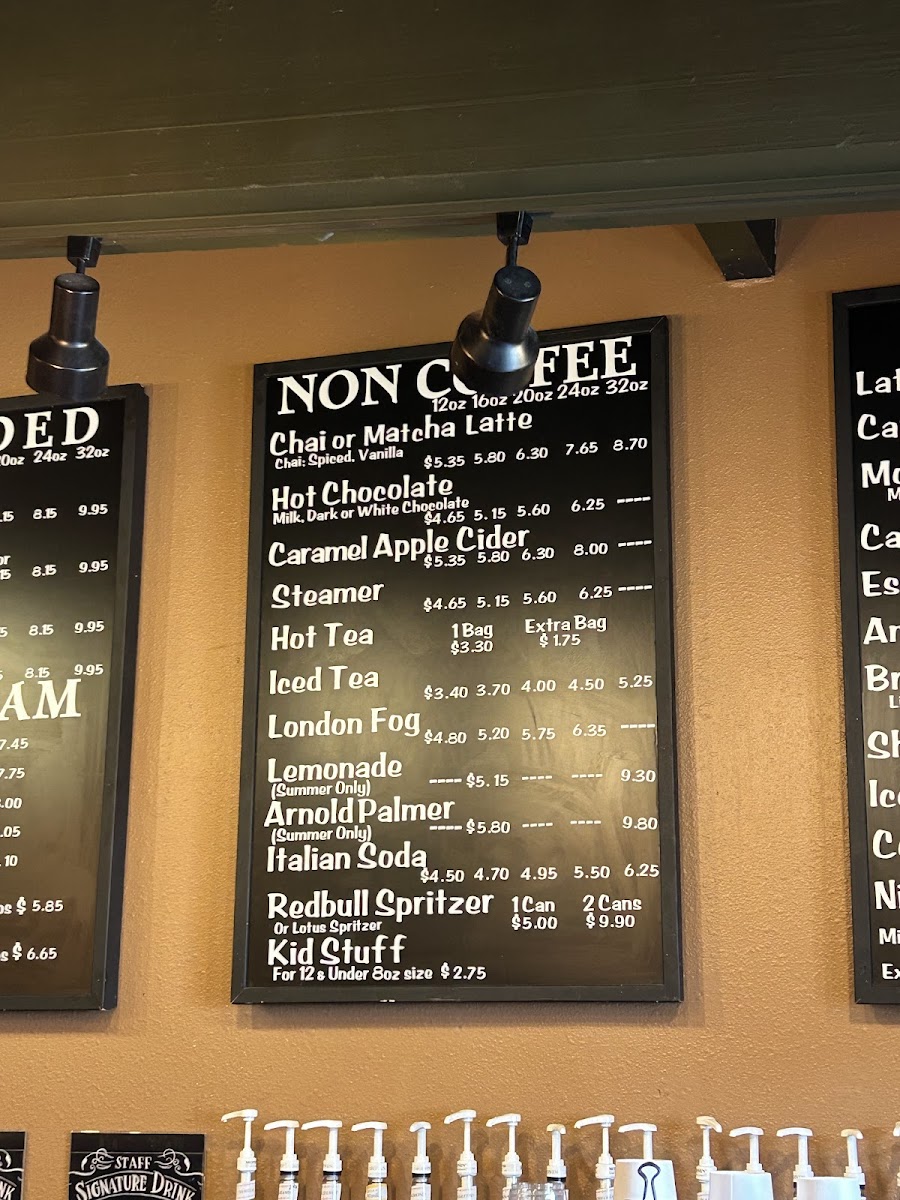 DED
20oz 24oz 32oz
8.15 9.95
8.15 9.95
8.15 9.95
8.15 9.95
AM
7.45
7.75
.00
.05
.10
$ 5.85
$ 6.65
NON COFFEE
12oz 16oz 20oz 24oz 32oz
Chai or Matcha Latte
Chai: Spiced, Vanilla $5.35 5.80 6.30 7.65 8.70
Hot Chocolate
Milk, Dark or White Chocolate
$4.65 5.15 5.60 6.25 ----
Caramel Apple Cider
$5.35 5.80 6.30 8.00 ----
Steamer $4.65 5.15 5.60 6.25 ----
Hot Tea 1 Bag Extra Bag
$3.30 $1.75
Iced Tea $3.40 3.70 4.00 4.50 5.25
London Fog $4.80 5.20 5.75 6.35 ----
Lemonade ---- $5.15 ---- ---- 9.30
(Summer Only)
Arnold Palmer ---- $5.80 ---- ---- 9.80
(Summer Only)
Italian Soda $4.50 4.70 4.95 5.50 6.25
Redbull Spritzer 1 Can 2 Cans
Or Lotus Spritzer $5.00 $9.90
Kid Stuff
For 12 & Under 8oz size $2.75
Lat
Ca
Mo
M
Ca
Es
Br
Li
Sh
Ic
Ni
Mi
Ex
STAFF
SIGNATURE DRINK